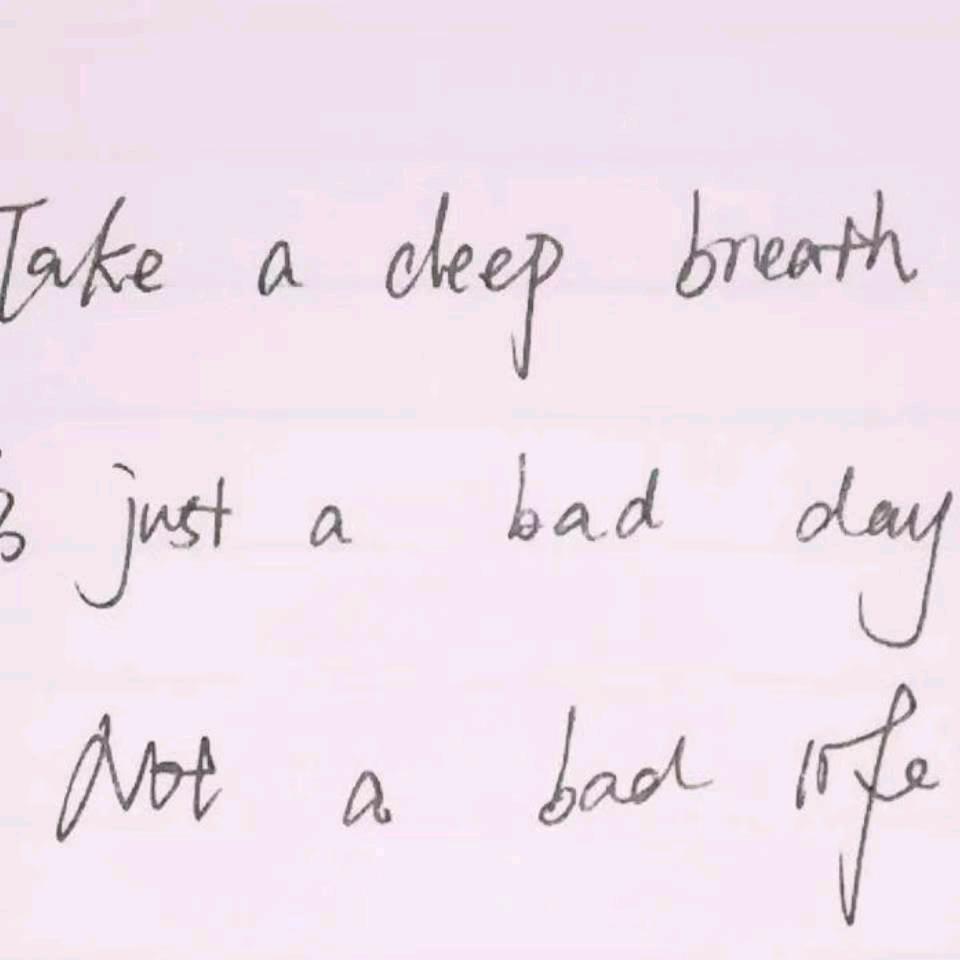 Take a deep breath
just a bad day
Not a bad life